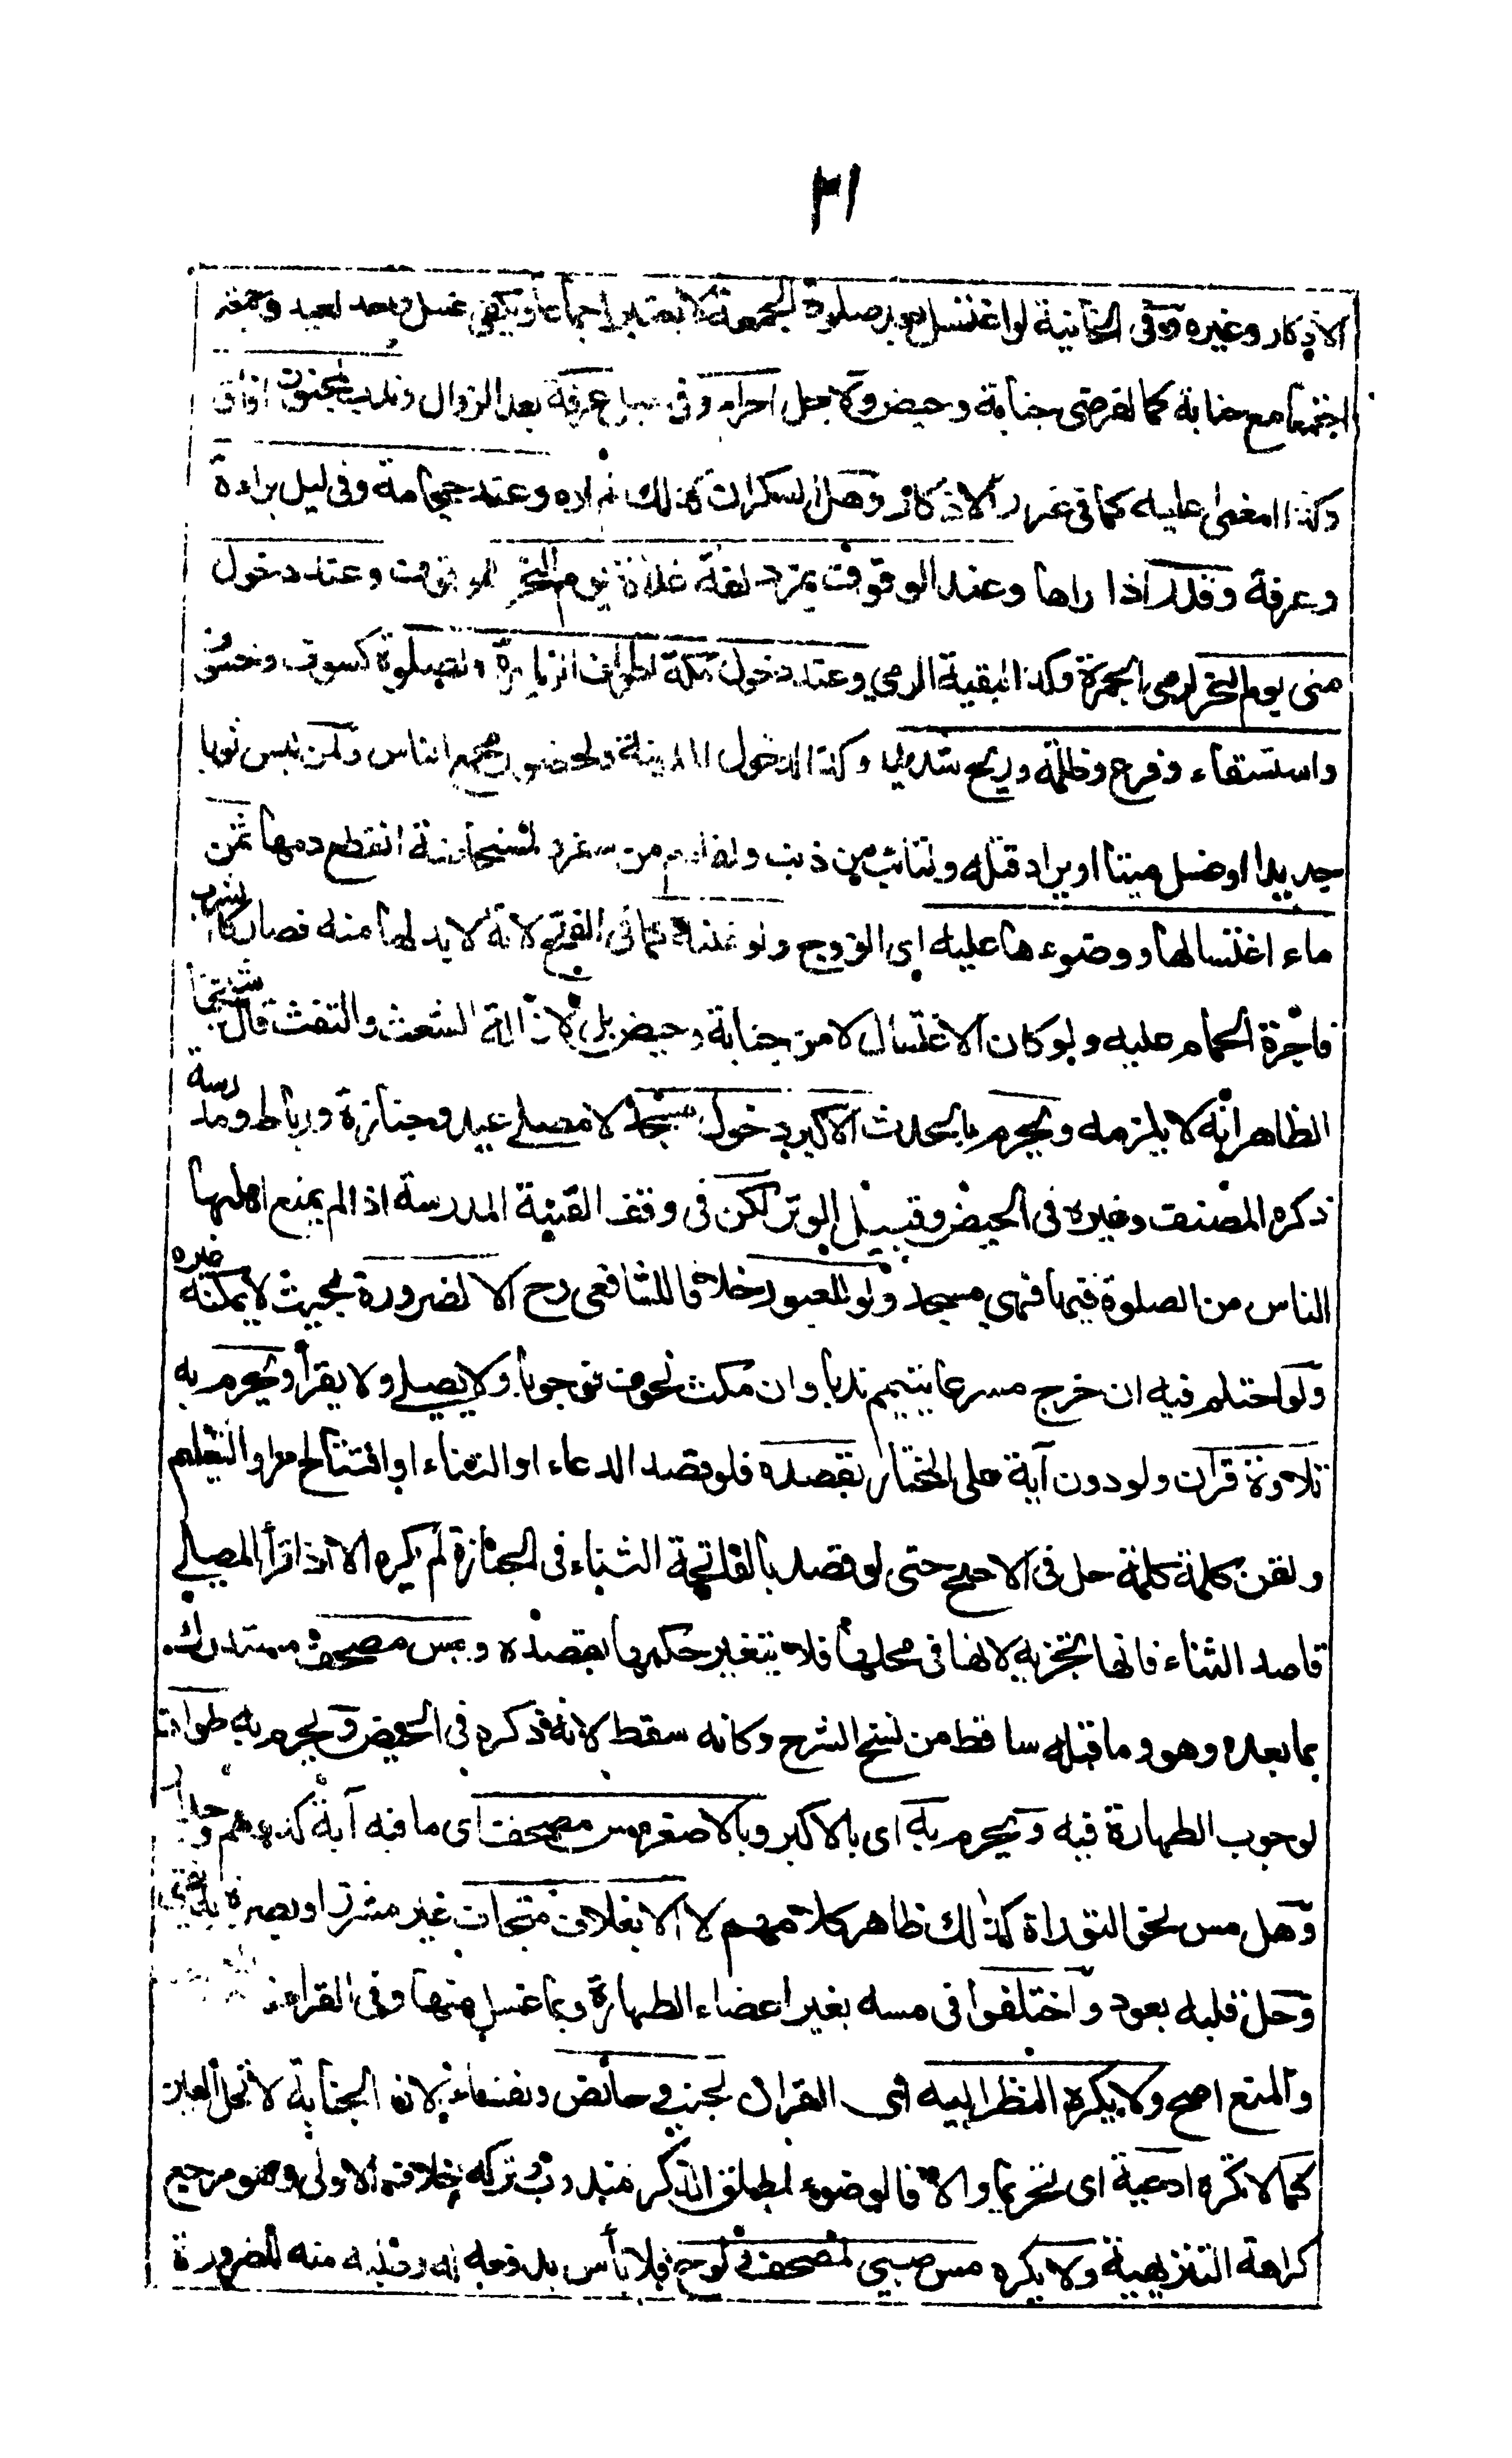 ٣١
الاذكار وغيره وفي الخانية لو اغتسل بعد صلوة الجمعة لا يعتبر اجماعا ويكفي غسل واحد لعيد وجمعة
اجتمعا مع جنابة كما لفرضي جنابة وحيض ولاجل احرام وفي جبل عرفة بعد الزوال وندب لمجنون افاق
وكذا المغمى عليه كما في غرر الاذكار وهل السكران كذلك لم اره وعند حجامة وفي ليل براءة
وعرفة وقدر اذا راها وعند الوقوف بمزدلفة غداة يوم النحر للوقوف وعند دخول
منى يوم النحر لرمي الجمرة وكذا لبقية الرمي وعند دخول مكة لطواف الزيارة ولصلوة كسوف وخسوف
واستسقاء وفزع وظلمة وريح شديد وكذا لدخول المدينة ولحضور مجمع الناس ولمن لبس ثوبا
جديدا او غسل ميتا او يراد قتله ولتائب من ذنب ولقادم من سفر ولمستحاضة انقطع دمها ثمن
ماء اغتسالها ووضوءها عليه اي الزوج ولو غنية كما في الفتح لانه لا بد لها منه فصار كالشرب
فاجرة الحمام عليه ولو كان الاغتسال لا من جنابة وحيض بل لازالة الشعث والتفث قال شيخنا
الظاهر انه لا يلزمه ويحرم بالحدث الاكبر دخول مسجد لا مصلے عيد وجنازة ورباط ومدرسة
ذكره المصنف وغيره في الحيض وقبيل الوتر لكن في وقف القنية المدرسة اذا لم يمنع اهلها
الناس من الصلوة فيها فهي مسجد ولو للعبور خلافا للشافعي رح الا لضرورة بحيث لا يمكنه غيره
ولو احتلم فيه ان خرج مسرعا يتيمم ندبا وان مكث لخوف فوجوبا ولا يصلے ولا يقرأ ويحرم به
تلاوة قرآن ولو دون آية على المختار بقصده فلو قصد الدعاء او الثناء او افتتاح امر او التعليم
ولقن كلمة كلمة حل في الاصح حتى لو قصد بالفاتحة الثناء في الجنازة لم يكره الا اذا قرأ المصلے
قاصد الثناء فانها تجزيه لانها في محلها فلا يتغير حكمها بقصده ومس مصحف مستدرك
بما بعده وهو وما قبله ساقط من نسخ الشرح وكانه سقط لانه ذكره في الحيض ويحرم به طواف
لوجوب الطهارة فيه ويحرم به اي بالاكبر وبالاصغر مس مصحف اي ما فيه آية كدرهم وجدار
وهل مس نحو التوراة كذلك ظاهر كلامهم لا الا بغلاف متجاف غير مشرز او بصرة به يفتى
وحل قلبه بعود واختلفوا في مسه بغير اعضاء الطهارة وبما غسل منها وفي القراءة
والمنع اصح ولا يكره النظر اليه اى القران لجنب وحائض ونفساء لان الجنابة لا تحل العين
كما لا تكره ادعية اى تحريما والا فالوضوء لمطلق الذكر مندوب وتركه خلاف الاولى وهو مرجع
كراهة التنزيهية ولا يكره مس صبي لمصحف ولوح فلا بأس بدفعه اليه وطلبه منه للضرورة